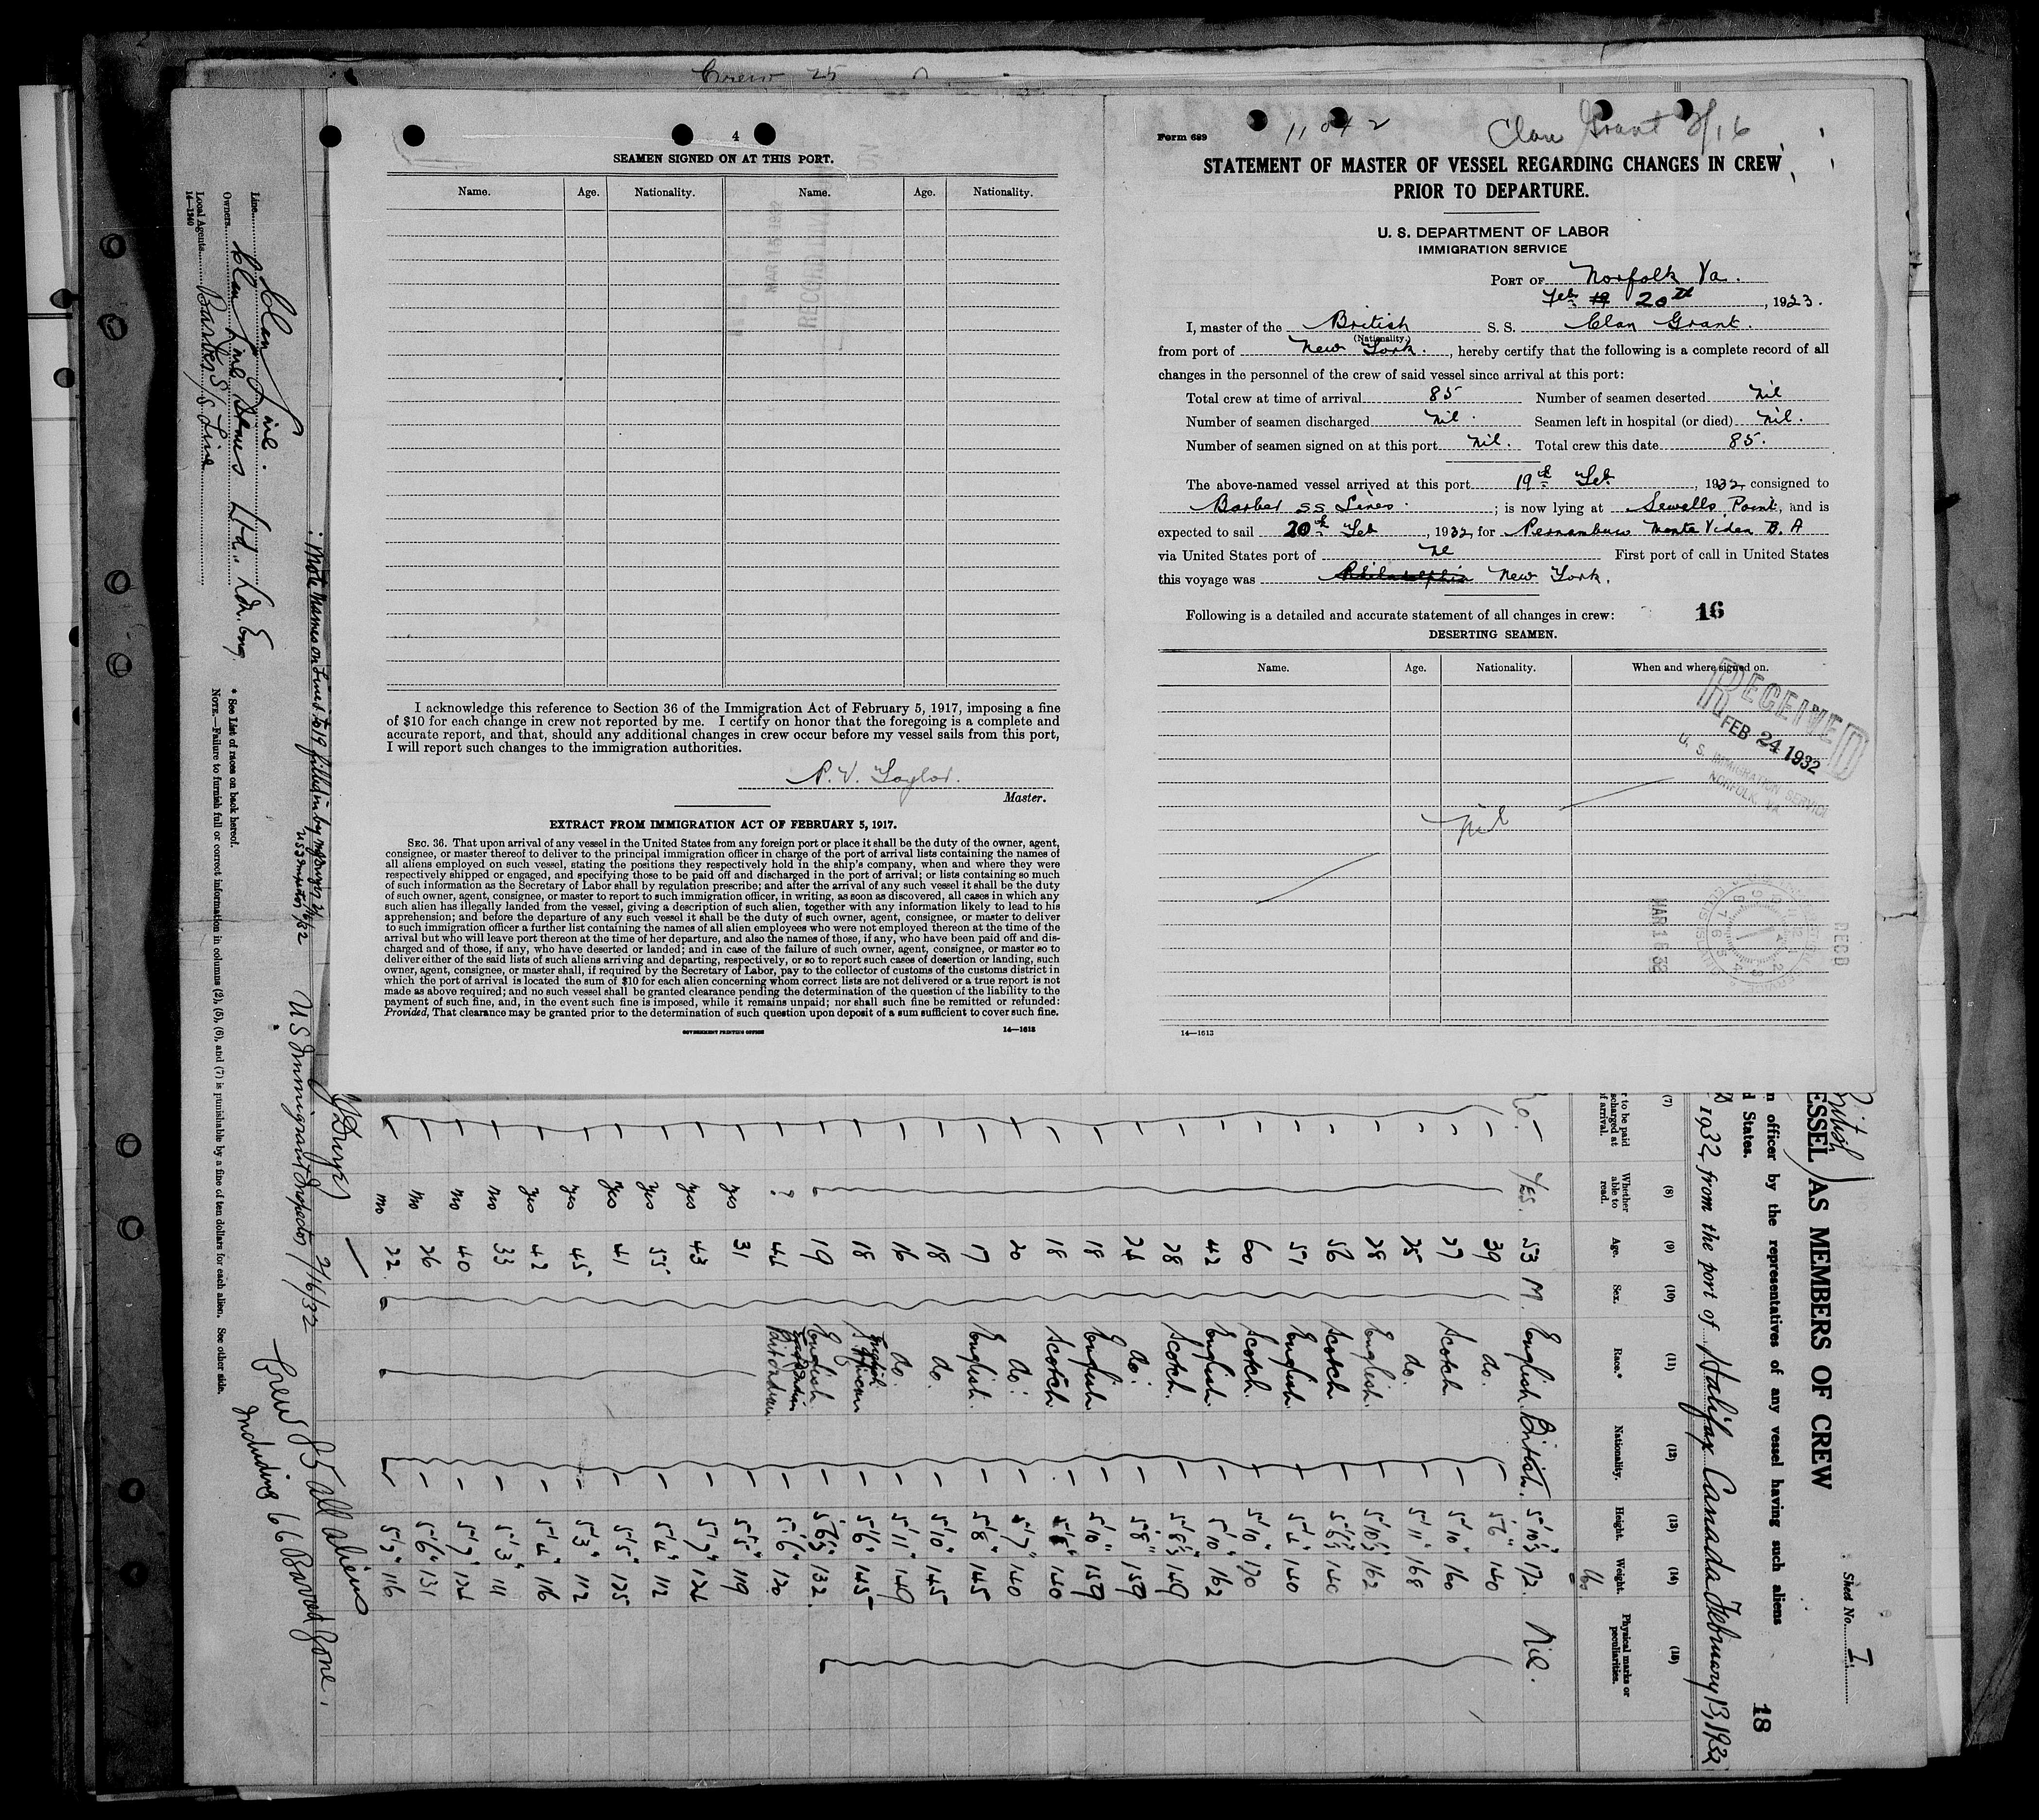 Crew 25
4
SEAMEN SIGNED ON AT THIS PORT.
Name. Age. Nationality. Name. Age. Nationality.
I acknowledge this reference to Section 36 of the Immigration Act of February 5, 1917, imposing a fine
of $10 for each change in crew not reported by me. I certify on honor that the foregoing is a complete and
accurate report, and that, should any additional changes in crew occur before my vessel sails from this port,
I will report such changes to the immigration authorities.
P. V. Taylor.
Master.
EXTRACT FROM IMMIGRATION ACT OF FEBRUARY 5, 1917.
SEC. 36. That upon arrival of any vessel in the United States from any foreign port or place it shall be the duty of the owner, agent,
consignee, or master thereof to deliver to the principal immigration officer in charge of the port of arrival lists containing the names of
all aliens employed on such vessel, stating the positions they respectively hold in the ship's company, when and where they were
respectively shipped or engaged, and specifying those to be paid off and discharged in the port of arrival; or lists containing so much
of such information as the Secretary of Labor shall by regulation prescribe; and after the arrival of any such vessel it shall be the duty
of such owner, agent, consignee, or master to report to such immigration officer, in writing, as soon as discovered, all cases in which any
such alien has illegally landed from the vessel, giving a description of such alien, together with any information likely to lead to his
apprehension; and before the departure of any such vessel it shall be the duty of such owner, agent, consignee, or master to deliver
to such immigration officer a further list containing the names of all alien employees who were not employed thereon at the time of the
arrival but who will leave port thereon at the time of her departure, and also the names of those, if any, who have been paid off and dis-
charged and of those, if any, who have deserted or landed; and in case of the failure of such owner, agent, consignee, or master so to
deliver either of the said lists of such aliens arriving and departing, respectively, or so to report such cases of desertion or landing, such
owner, agent, consignee, or master shall, if required by the Secretary of Labor, pay to the collector of customs of the customs district in
which the port of arrival is located the sum of $10 for each alien concerning whom correct lists are not delivered or a true report is not
made as above required; and no such vessel shall be granted clearance pending the determination of the question of the liability to the
payment of such fine, and, in the event such fine is imposed, while it remains unpaid; nor shall such fine be remitted or refunded:
Provided, That clearance may be granted prior to the determination of such question upon deposit of a sum sufficient to cover such fine.
GOVERNMENT PRINTING OFFICE 14—1613
Form 689 11842 Clan Grant 2/16
STATEMENT OF MASTER OF VESSEL REGARDING CHANGES IN CREW
PRIOR TO DEPARTURE.
U. S. DEPARTMENT OF LABOR
IMMIGRATION SERVICE
PORT OF Norfolk Va.
Feb 19 20th, 1923.
I, master of the British S. S. Clan Grant.
(Nationality.)
from port of New York., hereby certify that the following is a complete record of all
changes in the personnel of the crew of said vessel since arrival at this port:
Total crew at time of arrival 85 Number of seamen deserted nil
Number of seamen discharged nil Seamen left in hospital (or died) nil.
Number of seamen signed on at this port nil. Total crew this date 85.
The above-named vessel arrived at this port 19th Feb, 1932, consigned to
Barber SS Lines.; is now lying at Sewells Point, and is
expected to sail 20th Feb, 1932, for Pernambuco Monte Video B. A
via United States port of First port of call in United States
this voyage was Philadelphia New York.
Following is a detailed and accurate statement of all changes in crew: 16
DESERTING SEAMEN.
Name. Age. Nationality. When and where signed on.
RECEIVED
FEB 24 1932
U. S. IMMIGRATION SERVICE
NORFOLK, VA
nil
MAR 16 32
RECD
14—1613
Line Clan Line.
Owners Clan Line Strs Ltd., Ldn. Eng.
Local Agents Barber S/S Line
14—1240
* See List of races on back hereof.
NOTE.—Failure to furnish full or correct information in columns (2), (5), (6), and (7) is punishable by a fine of ten dollars for each alien. See other side.
U.S. Immigrant Inspector 2/16/32
Crew 85 all aliens
Including 66 Barred Zone.
Sheet No. I.
British
ESSEL AS MEMBERS OF CREW
n officer by the representatives of any vessel having such aliens
d States.
18
1932, from the port of Halifax Canada February 13, 1932
(7) (8) (9) (10) (11) (12) (13) (14) (15)
r to be paid
scharged at
f arrival.
Whether
able to
read.
Age. Sex. Race.* Nationality. Height. Weight. Physical marks or
peculiarities.
lbs
no. Yes. 53 M. English. British. 5'10½" 172. Nil.
39 do. 5'6" 140
27 Scotch 5'10" 160
25 do. 5'11" 168
28 English. 5'10½" 162
56 Scotch 5'6½" 140
51 English 5'4" 140
60 Scotch. 5'10" 170
42 English 5'10" 162
28 Scotch. 5'8½" 149
24 do. 5'8" 159
18 English 5'10" 159
18 Scotch 140
20 do. 5'7" 140
17 English. 5'8" 145
18 do. 5'10" 145
16 do. 5'11" 149
18 5'6" 145
19 English 5'6½" 132.
? 5'6" 120
yes 31 5'5" 119
yes 43 5'7" 124
yes 55 5'4" 112
yes 41 5'5" 125
yes 45 5'3" 112
yes 42 5'4" 116
no 33 5'3" 111
no 40 5'7" 124
no 26 5'6" 131
no 22. 5'7" 116